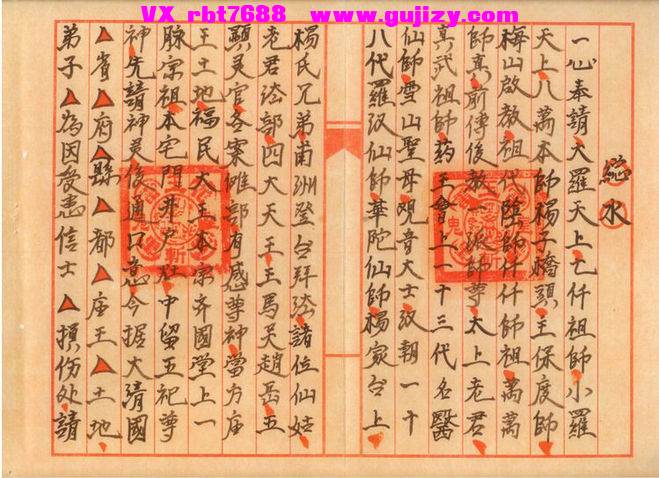 VX rbt7688 www.gujizy.com
水
一心奉請大羅天上七仟祖師小羅
天上八萬本師楊子橋頭王保度師
梅山啟教祖代隂師仟仟師祖萬萬
師真前傳後教一派師尊太上老君
真武祖師药王會上一十三代名醫
仙師雪山聖母观音大士汉朝一十
八代羅汉仙師華陀仙師楊家台上
楊氏兄弟甫洲登台拜法諸位仙娃
老君法部四大天王王馬灵趙岳五
顕灵官各案雄部有感尊神當方庙
王土地福民大王本宗齐國堂上一
脉宗祖本宅門井户灶中留五祀尊
神先請神灵後通口意今据大清國
▲省▲府▲縣▲都▲庙王▲土地
弟子▲為因受患信士▲損伤处請